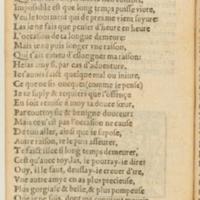 Impossible est que long temps puisse vivre,
Veu le tourment qui de pres me vient suyvre:
Las ie ne sais que penser d'heure en heure
L'occasion de ta longue demeure:
Mais ie ne puis songer une raison,
Qui t'ait esmeu d'eslongner ma raison:
Helas amy si, par cas d'aduenture,
Ie t'auois fait quelque mal ou iniure,
Ce que ne sis onques (comme ie pense)
Ie te suply & requiers que l'offence
En soit remise à moy ta douce sœur,
Par courtoysie & benigne douceur:
Mais ceci n'est pas l'occasion ne cause
De ton aller, ainsi que ie supose,
Autre raison, ie ne puis asseurer,
Te faisse si long temps demeurer,
C'est qu'auec toy las, ie pourray ie dire?
Ouy, il le faut, deussay-ie creuer d'ire,
Vne autre ayme en as plus precieuse,
Plus gorgiase & belle, & plus pompeuse